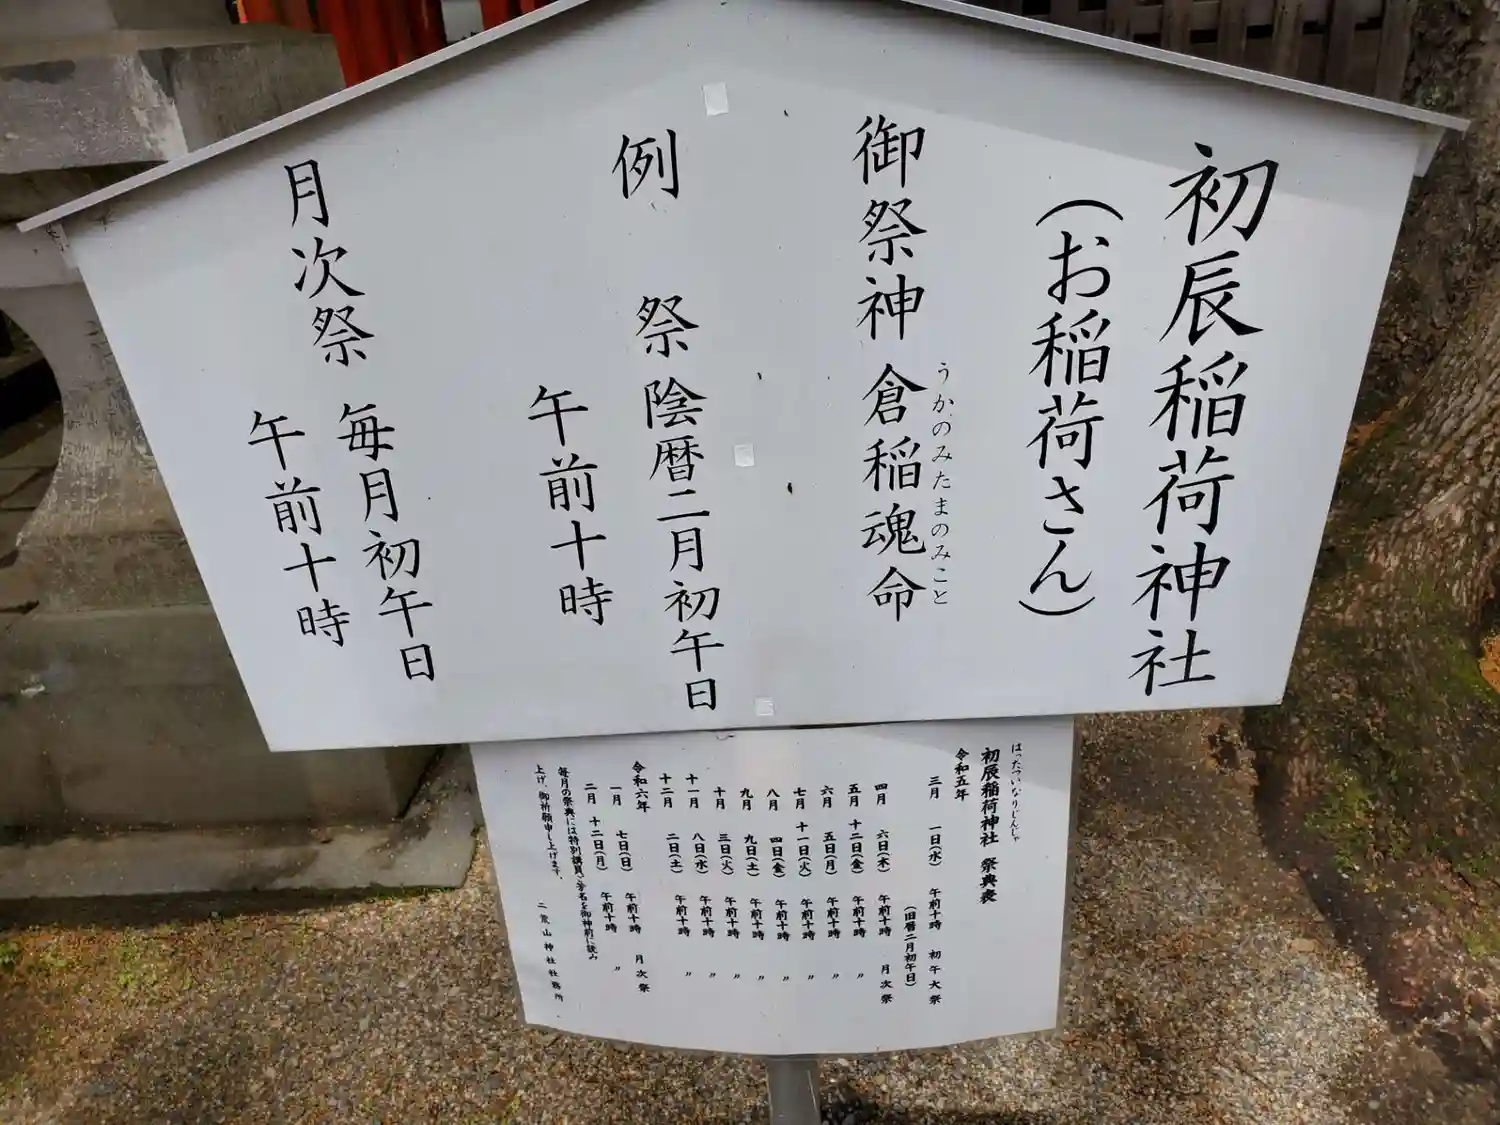 初辰稲荷神社
（お稲荷さん）
御祭神 倉稲魂命
うかのみたまのみこと
例 祭 陰暦二月初午日
午前十時
月次祭 毎月初午日
午前十時
はったついなりじんじゃ
初辰稲荷神社 祭典表
令和五年
三月 一日(水) 午前十時 初午大祭
(旧暦二月初午日)
四月 六日(木) 午前十時 月次祭
五月 十二日(金) 午前十時 〃
六月 五日(月) 午前十時 〃
七月 十一日(火) 午前十時 〃
八月 四日(金) 午前十時 〃
九月 九日(土) 午前十時 〃
十月 三日(火) 午前十時 〃
十一月 八日(水) 午前十時 〃
十二月 二日(土) 午前十時 〃
令和六年
一月 七日(日) 午前十時 月次祭
二月 十二日(月) 午前十時 〃
毎月の祭典には特別講員ご芳名を御神前に読み
上げ、御祈願申し上げます。
二荒山神社社務所